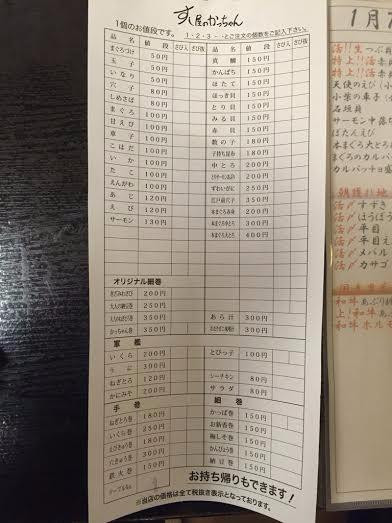 すし屋のかっちゃん
1個のお値段です。
1・2・3・・・とご注文の個数をご記入下さい。
品名 値段 さび入 さび抜 品名 値段 さび入 さび抜
まぐろづけ 50円 真鯛 150円
玉子 50円 かんぱち 150円
いなり 50円 ほたて 150円
穴子 80円 ほっき貝 150円
しめさば 80円 とり貝 150円
まぐろ 100円 みる貝 150円
甘えび 100円 赤貝 150円
章子 100円 数の子 180円
こはだ 100円 子持ち昆布 180円
いか 100円 中とろ 200円
たこ 100円 200円
えんがわ 100円 ずわいがに 250円
あじ 120円 江戸前穴子 350円
えび 120円 本まぐろ赤身 200円
サーモン 130円 本まぐろ中とろ 300円
本まぐろ大とろ 400円
オリジナル細巻
きざみわさび 200円
大人の細巻 250円
350円 あら汁 300円
かっちゃん巻 350円 300円
軍艦
いくら 200円 とびっ子 100円
うに 300円
ねぎとろ 120円 シーチキン 80円
かにみそ 200円 サラダ 80円
手巻 細巻
ねぎとろ巻 180円 かっぱ巻 150円
いくら巻 250円 お新香巻 150円
180円 梅しそ巻 150円
300円 かんぴょう巻 150円
鉄火巻 150円 納豆巻 150円
テーブルNo.
お持ち帰りもできます！
※当店の価格は全て税抜き表示となっております。
1月
活!!生つぶ貝
特上!!活赤
上!!活赤
天使のえび
小柴の
石垣貝
サーモン中落ち
ぼたんえび
本まぐろ大とろ
まぐろのカルパ
カルパッチョ盛
朝獲れ地
活〆すずき
活〆ほうぼう
活〆平目
活〆平目え
活〆メバル
活〆カサゴ
和牛あぶり
上!和牛あ
和牛ホルモ